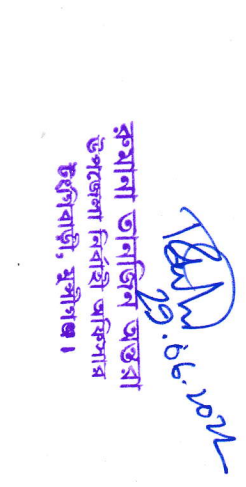 29.06.2022
রুমানা তানজিন অন্তরা
উপজেলা নির্বাহী অফিসার
টংগিবাড়ী, মুন্সীগঞ্জ।